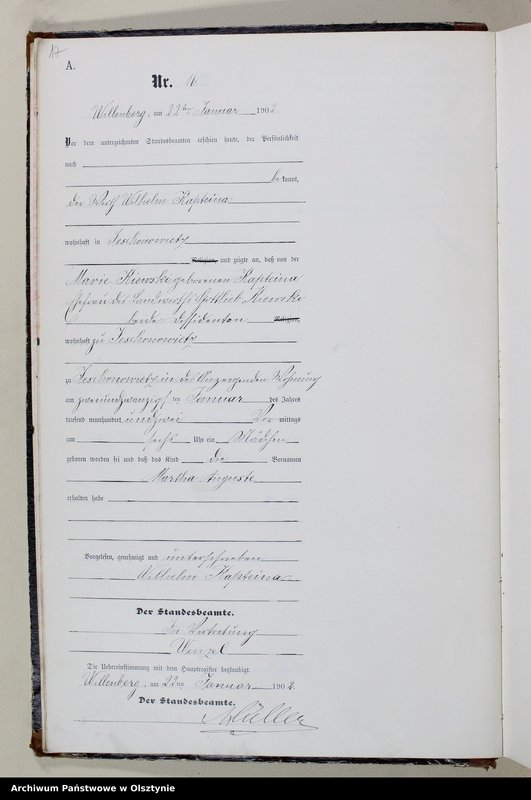 17
A.
Nr. 16
Willenberg, am 22ten Januar 1902.
Vor dem unterzeichneten Standesbeamten erschien heute, der Persönlichkeit
nach
be kannt,
der Wirth Wilhelm Kapteina
wohnhaft in Jeschonowietz
Religion, und zeigte an, daß von der
Marie Kiewski geborenen Kapteina
Ehefrau des Landwirths Gottlieb Kiewski
beide Dissidenten Religion,
wohnhaft zu Jeschonowietz
zu Jeschonowietz in des Anzeigenden Wohnung
am zweiundzwanzigsten Januar des Jahres
tausend neunhundert und zwei Vor mittags
um sechs Uhr ein Mädchen
geboren worden sei und daß das Kind die Vornamen
Martha Auguste
erhalten habe
Vorgelesen, genehmigt und unterschrieben
Wilhelm Kapteina
Der Standesbeamte.
In Vertretung
Wenzel
Die Uebereinstimmung mit dem Hauptregister beglaubigt.
Willenberg, am 22ten Januar 1902.
Der Standesbeamte.
Müller
Archiwum Państwowe w Olsztynie